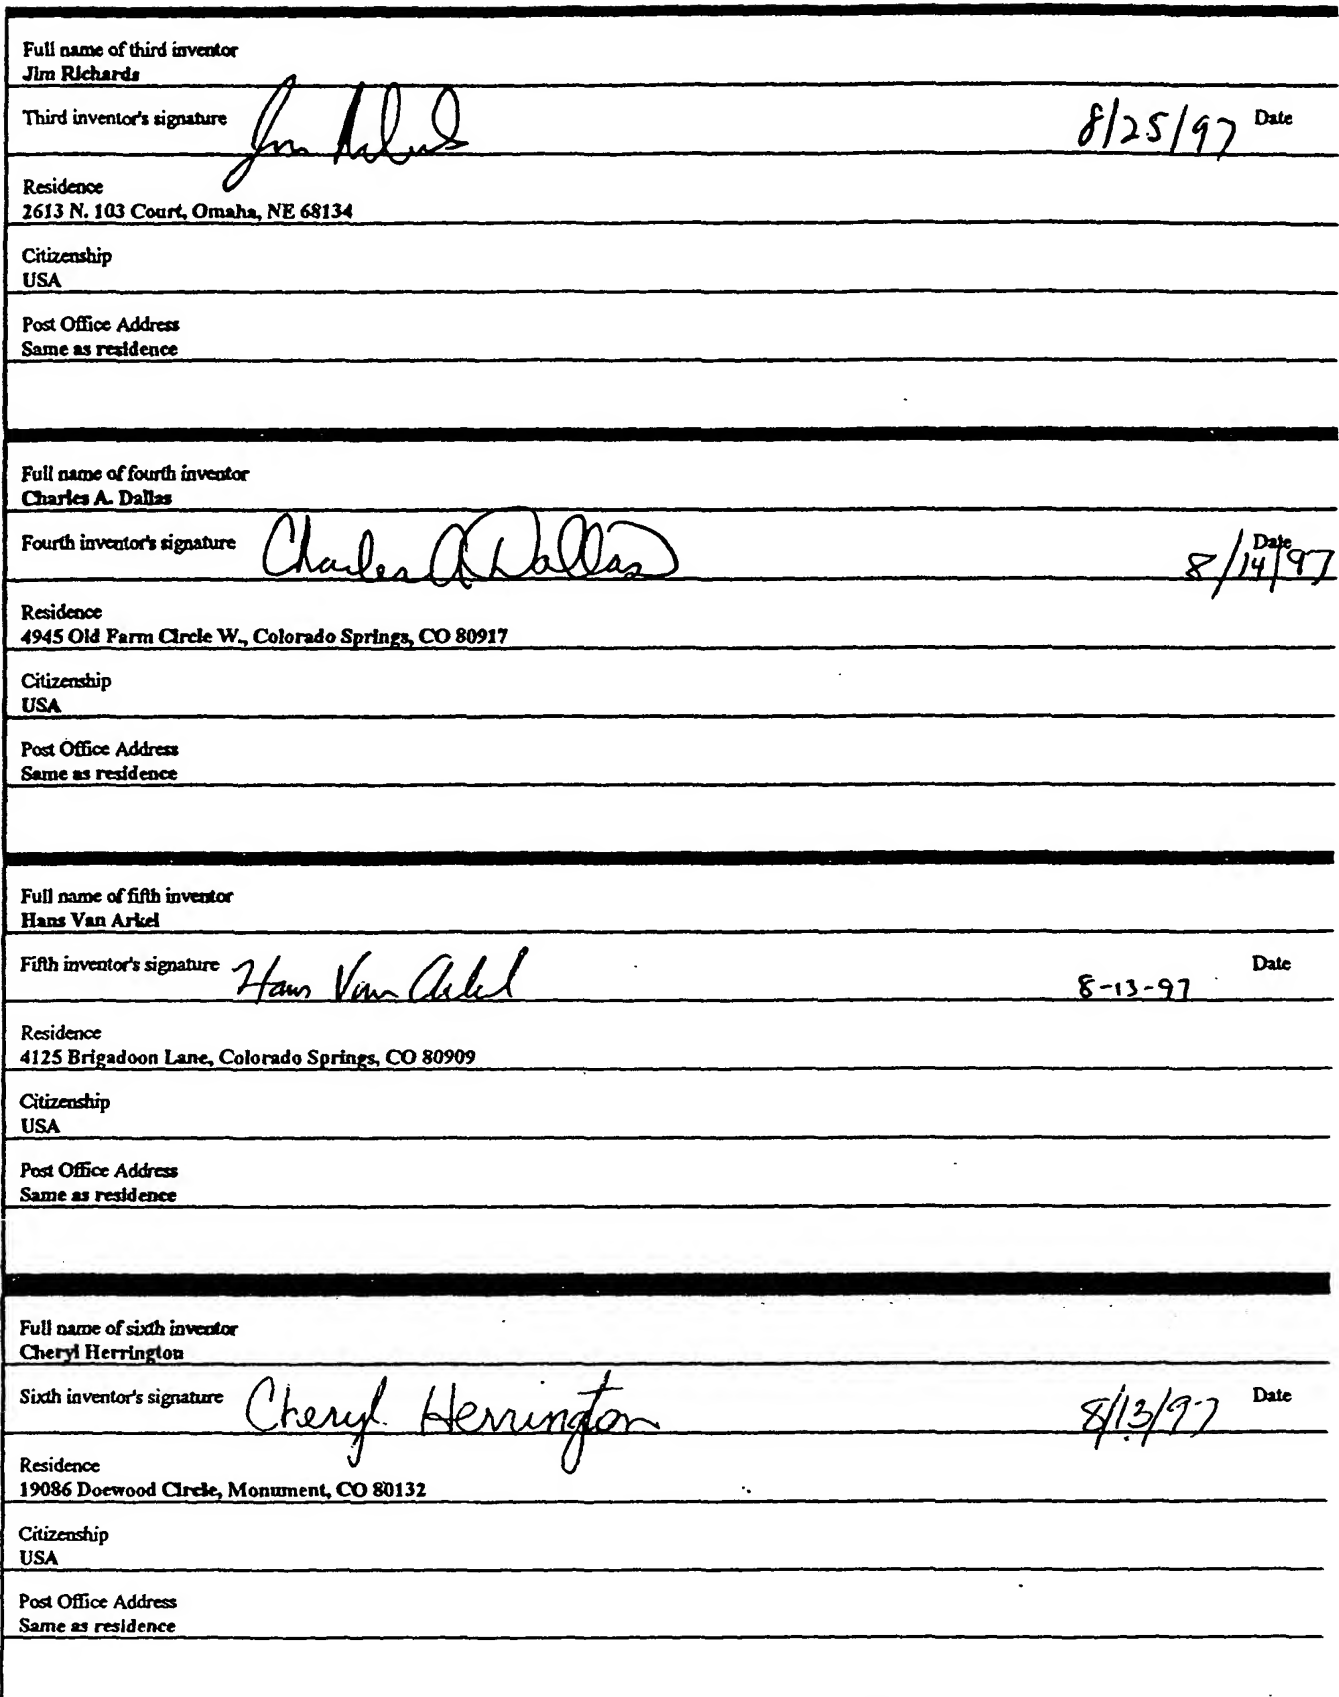 Full name of third inventor
Jim Richards
Third inventor's signature Jim Richards 8/25/97 Date
Residence
2613 N. 103 Court, Omaha, NE 68134
Citizenship
USA
Post Office Address
Same as residence
Full name of fourth inventor
Charles A. Dallas
Fourth inventor's signature Charles A Dallas 8/14/97 Date
Residence
4945 Old Farm Circle W., Colorado Springs, CO 80917
Citizenship
USA
Post Office Address
Same as residence
Full name of fifth inventor
Hans Van Arkel
Fifth inventor's signature Hans Van Arkel 8-13-97 Date
Residence
4125 Brigadoon Lane, Colorado Springs, CO 80909
Citizenship
USA
Post Office Address
Same as residence
Full name of sixth inventor
Cheryl Herrington
Sixth inventor's signature Cheryl Herrington 8/13/97 Date
Residence
19086 Doewood Circle, Monument, CO 80132
Citizenship
USA
Post Office Address
Same as residence